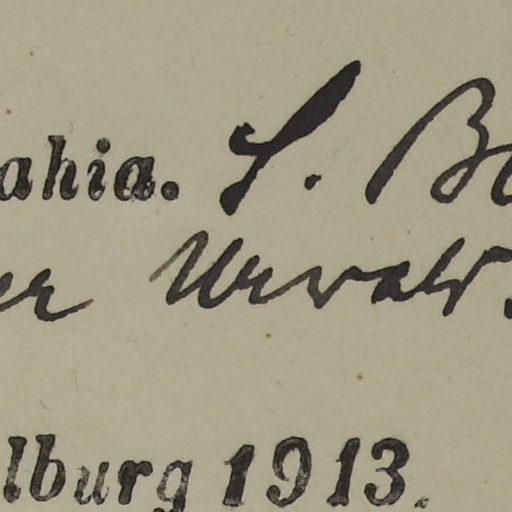 ahia. S. Bo
er Urwald.
lburg 1913.